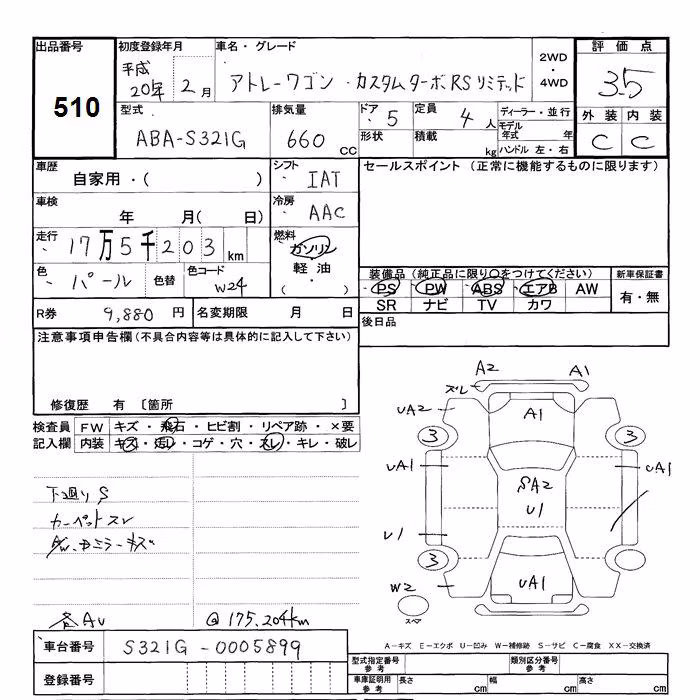 出品番号 510
初度登録年月 平成 20年 2月
車名・グレード アトレーワゴン・カスタムターボRSリミテッド
2WD・4WD
評価点 3.5
外装 内装
C C
型式 ABA-S321G
排気量 660 CC
ドア 5 定員 4人
形状 積載 kg
ディーラー・並行
モデル年式 年
ハンドル 左・右
車歴 自家用・( )
シフト IAT
セールスポイント (正常に機能するものに限ります)
車検 年 月( 日)
冷房 AAC
走行 17万5千203km
燃料 ガソリン・軽油・( )
色 パール 色替 色コード W24
装備品 (純正品に限り○をつけてください) 新車保証書
PS PW ABS エアB AW
SR ナビ TV カワ
有・無
R券 9,880 円 名変期限 月 日
後日品
注意事項申告欄(不具合内容等は具体的に記入して下さい)
修復歴 有 〔箇所 〕
検査員記入欄 FW キズ・飛石・ヒビ割・リペア跡・×要
内装 キズ・汚レ・コゲ・穴・スレ・キレ・破レ
下廻りS
カーペットスレ
ミラーキズ
各AU @175.204km
A2 A1
ズレ
UA2 A1
3 3
UA1 SA2 UA1
U1
U1
3
W2 UA1
スマ
車台番号 S321G-0005899
A-キズ E-エクボ U-凹み W-補修跡 S-サビ C-腐食 XX-交換済
登録番号
型式指定番号 参考 類別区分番号 参考
車庫証明用 参考 長さ cm 幅 cm 高さ cm